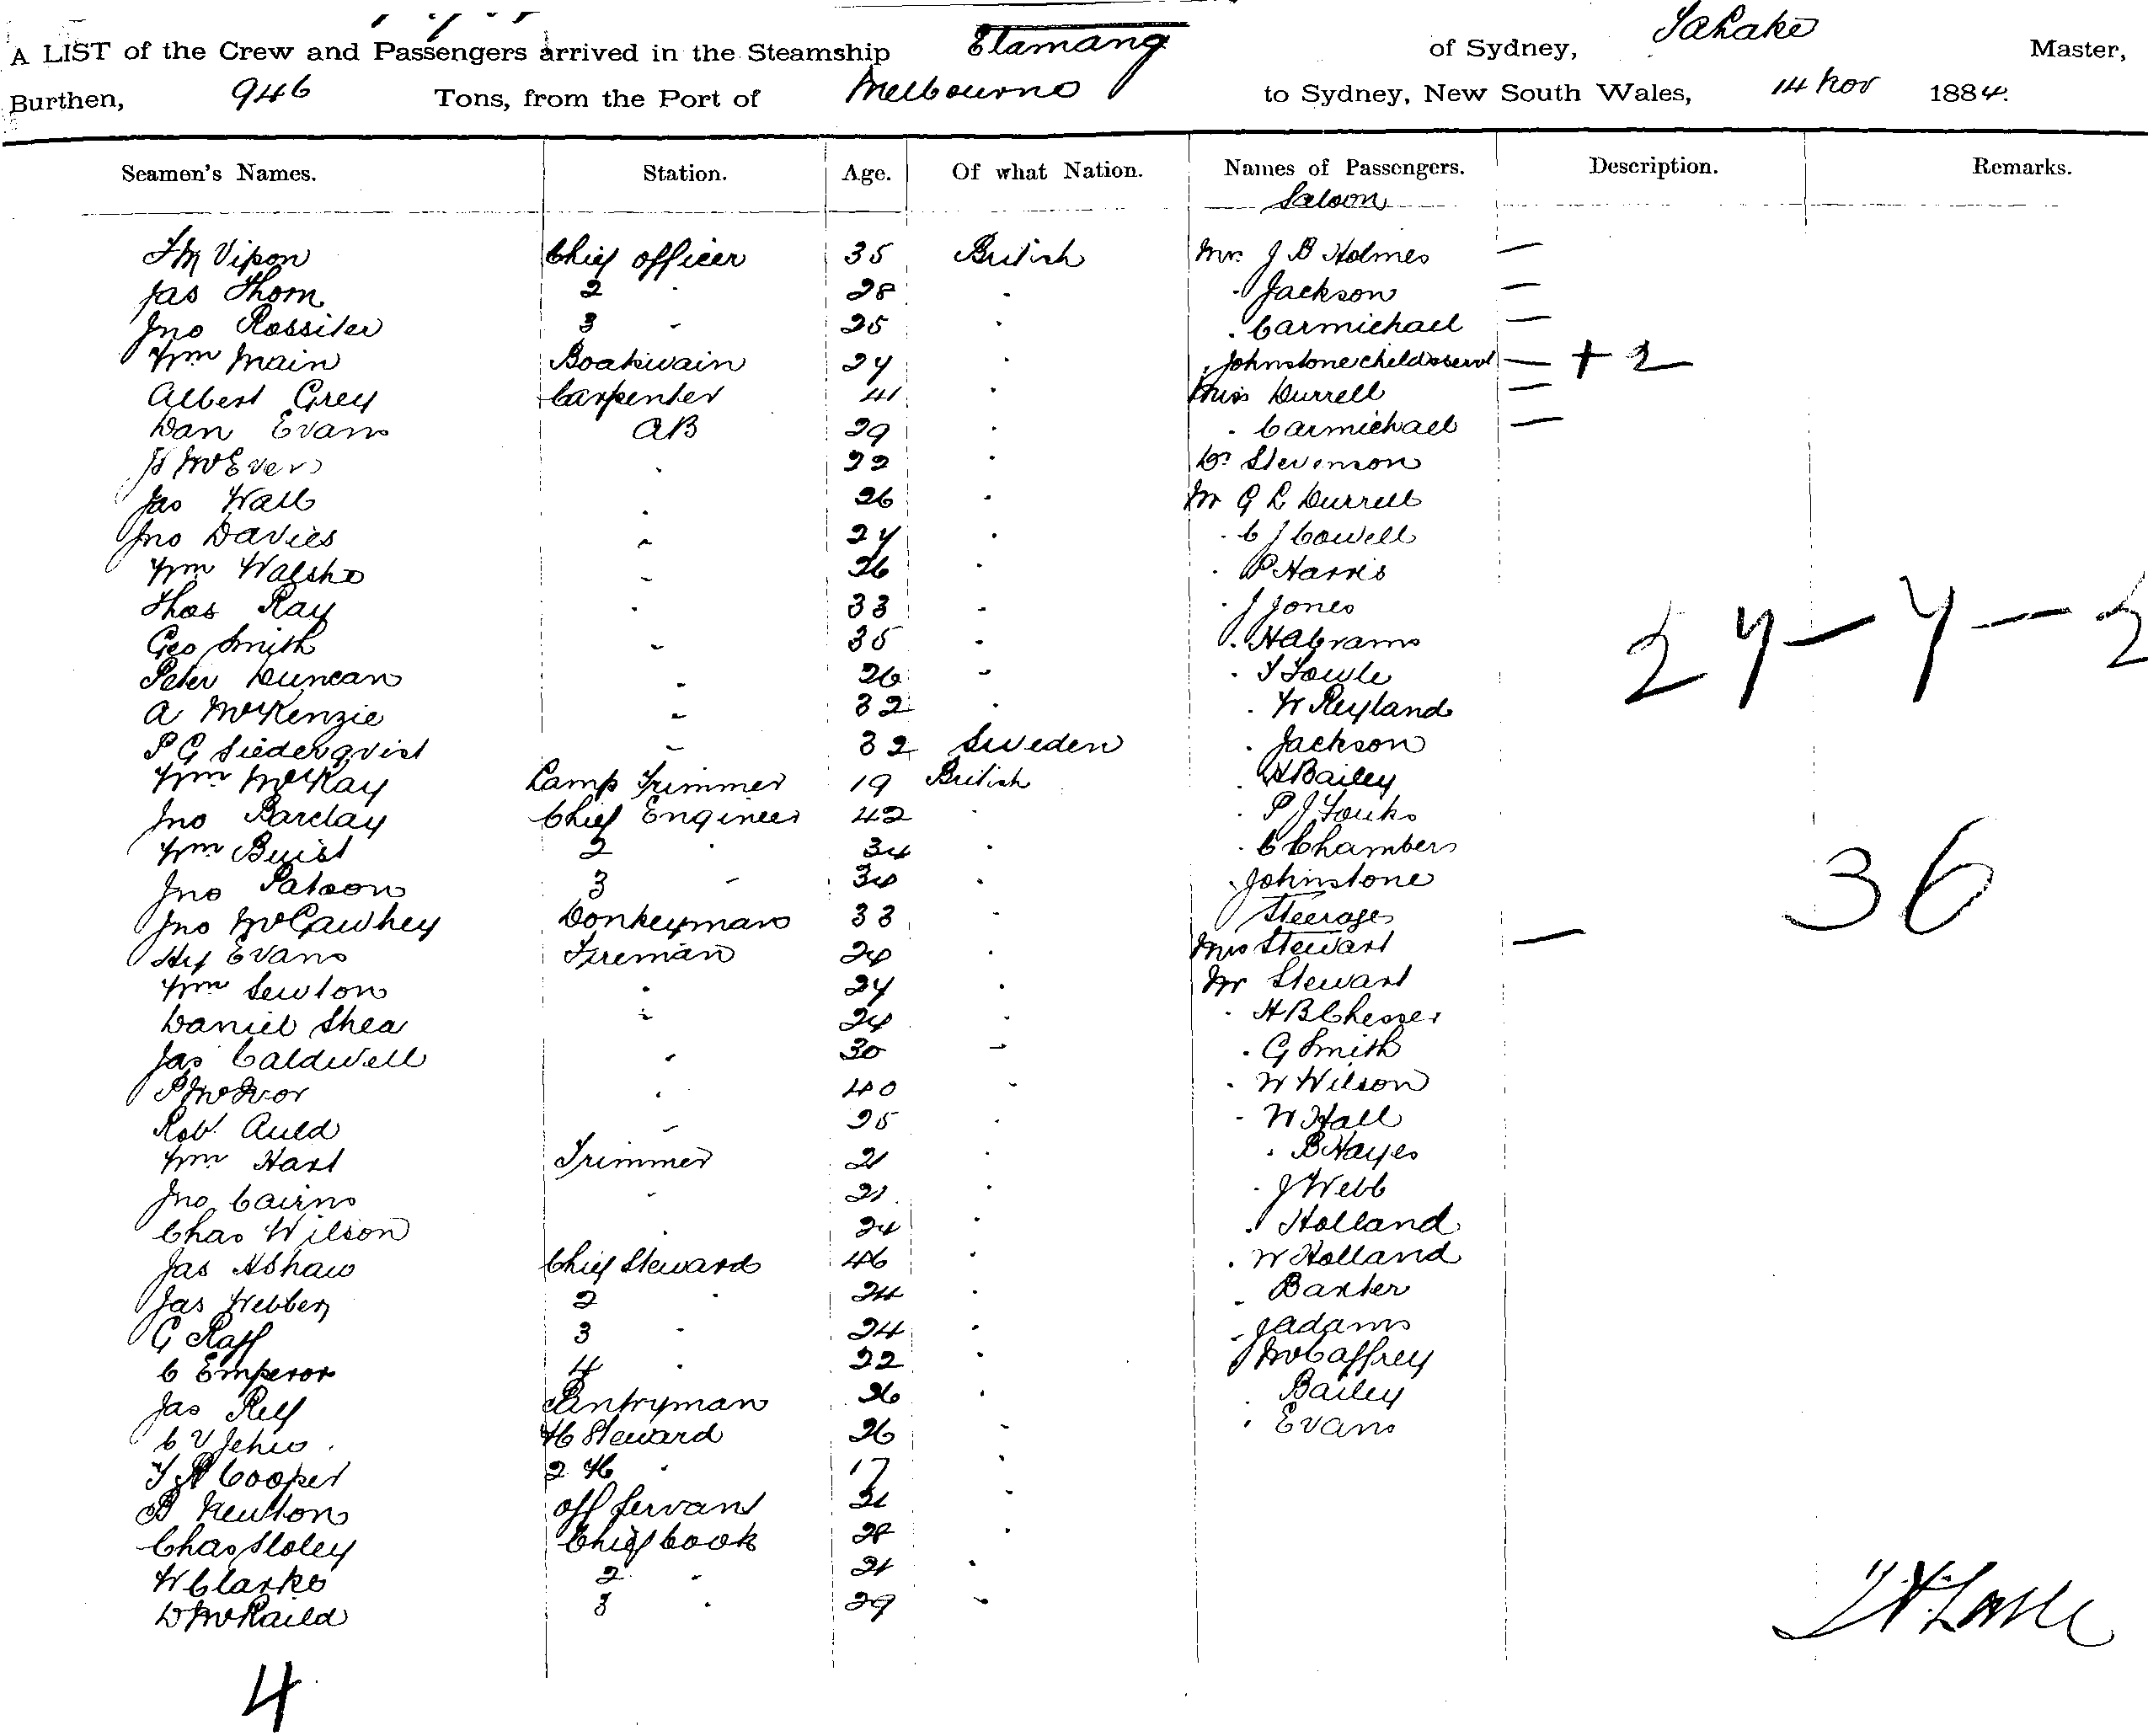 A LIST of the Crew and Passengers arrived in the Steamship Elamang of Sydney, Master,
Burthen, 946 Tons, from the Port of Melbourne to Sydney, New South Wales, 14 Nov 1884.
Seamen's Names. Station. Age. Of what Nation. Names of Passengers. Description. Remarks.
Saloon
Vipon Chief officer 35 British Mr. J B Holmes —
Jas Thom 2 " 28 " " Jackson —
Jno Rossiter 3 " 25 " " Carmichael —
Wm Main Boatswain 24 " " Johnstone child & servt — + 2
Albert Grey Carpenter 41 " Miss Durrell —
Dan Evans AB 29 " " Carmichael —
McEven " 22 " Dr Stevenson
Jas Wall " 26 " Mr G L Durrell
Jno Davies " 24 " " C J Cowell
Wm Walshe " 26 " " P Harris
Thos Ray " 33 " " J Jones
Geo Smith " 35 " " H Abrams
Peter Duncan " 26 " " T Fowle
A McKenzie " 32 " " W Reyland
P G Siederqvist " 32 Sweden " Jackson
Wm McKay Lamp Trimmer 19 British " H Bailey
Jno Barclay Chief Engineer 42 " " P J
Wm Buist 2 " 34 " " C Chambers
Jno Patson 3 " 34 " " Johnstone
Jno McCawhey Donkeyman 33 " Steerage
Hy Evans Fireman 24 " Mrs Stewart —
Wm Newton " 24 " Mr Stewart
Daniel Shea " 24 " " H B Chesser
Jas Caldwell " 30 " " G Smith
P McIvor " 40 " " W Wilson
Robt Auld " 25 " " W Hall
Wm Hart Trimmer 21 " " B Hayes
Jno Cairns " 21 " " J Webb
Chas Wilson " 24 " " Holland
Jas A Shaw Chief Steward 46 " " W Holland
Jas Webber 2 " 24 " " Baxter
G Raff 3 " 24 " " J Adams
C Emperor 4 " 22 " " McCaffrey
Jas Relf Pantryman 26 " " Bailey
C V Jehu FC Steward 26 " " Evans
T A Cooper 2 FC " 17 "
B Newton Off Servant 21 "
Chas Sloley Chief Cook 28 "
W Clarke 2 " 21 "
D McKaild 3 " 29 "
24 — 4 — 2
36
4